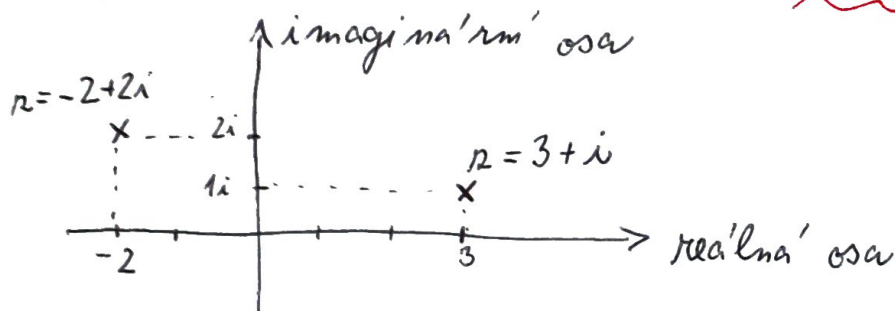 imaginární osa
z = -2+2i
2i
z = 3+i
1i
-2
3
reálná osa